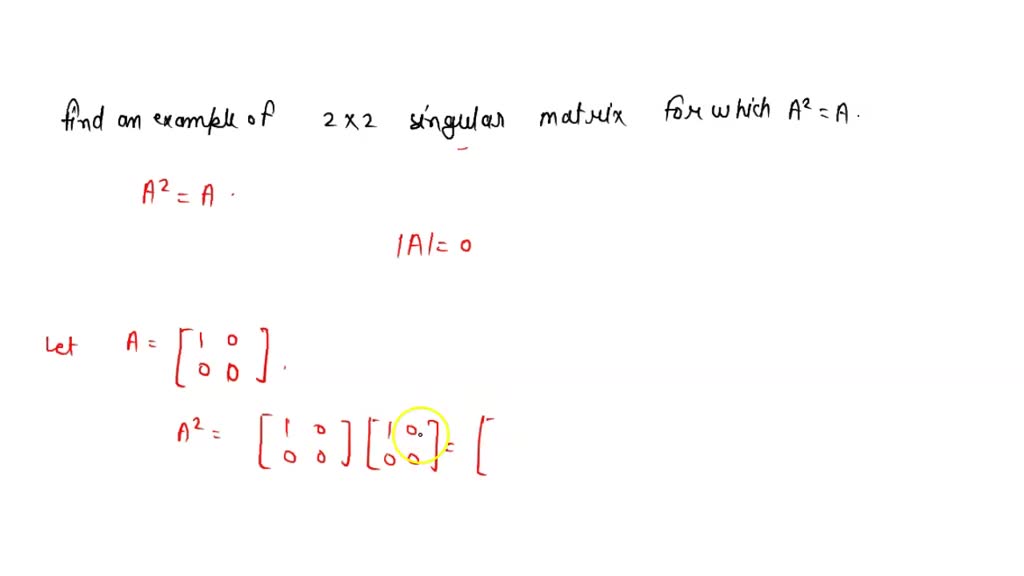 find an example of 2 × 2 singular matrix for which A² = A.
A² = A.
|A| = 0
Let A = [ 1 0
0 0 ].
A² = [ 1 0 ] [ 1 0 ] = [
0 0 0 0